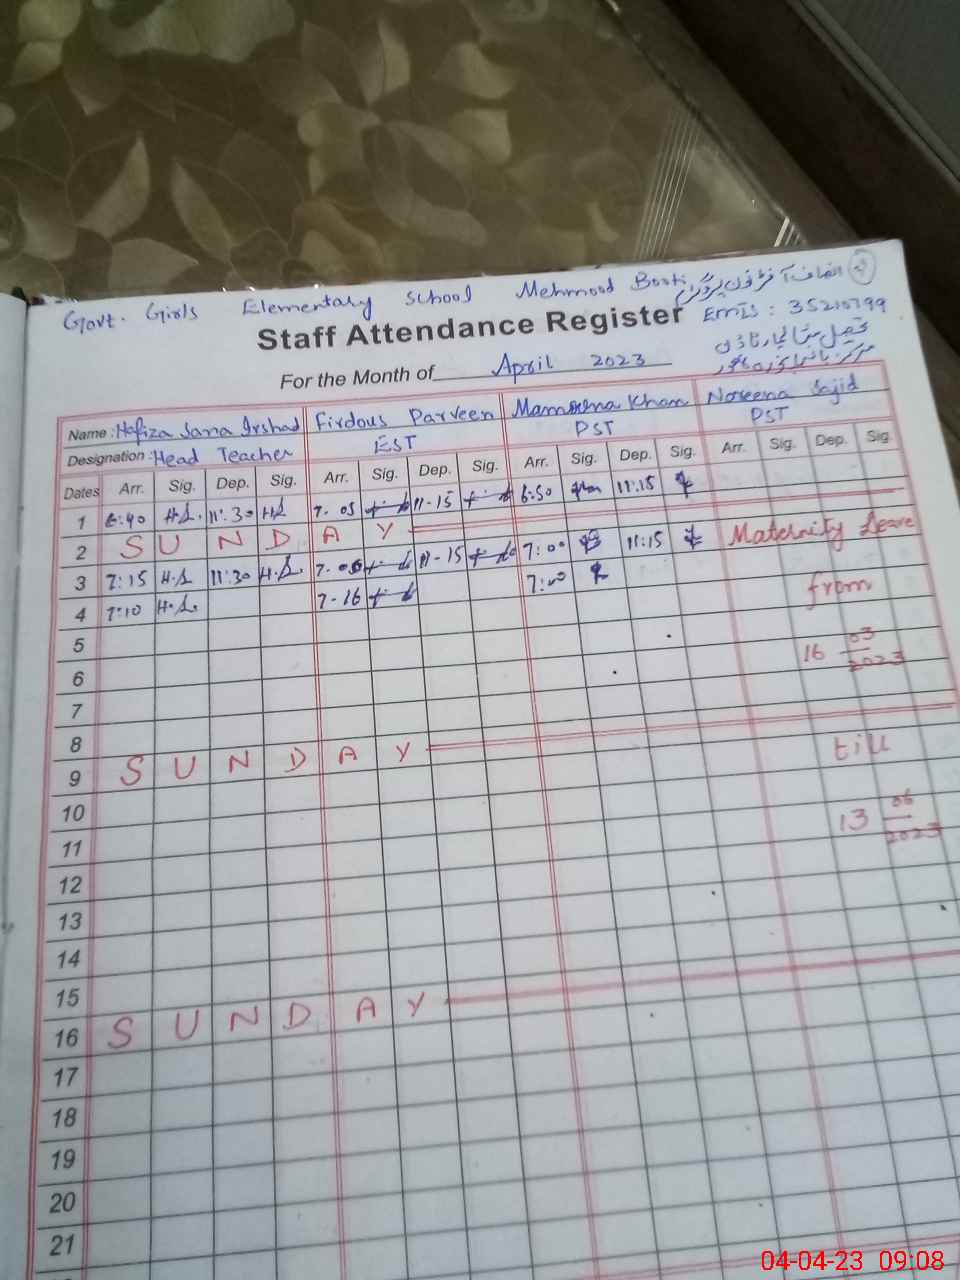 Govt. Girls Elementary School Mehmood Booti
Staff Attendance Register
EMIS : 35210799
For the Month of April 2023
Name : Hafiza Sana Irshad Firdous Parveen Mamoona Khan Noreena Sajid
Designation : Head Teacher EST PST PST
Dates Arr. Sig. Dep. Sig. Arr. Sig. Dep. Sig. Arr. Sig. Dep. Sig. Arr. Sig. Dep. Sig.
1 6:40 H.S. 11:30 H.S 7-05 11-15 6:50 11:15
2 S U N D A Y
Maternity Leave
3 7:15 H.S 11:30 H.S. 7-06 11-15 7:00 11:15
4 7:10 H.S. 7-16 7:00
from
5
6
16 03 2023
7
8
9 S U N D A Y
till
10
11
13 06 2023
12
13
14
15
16 S U N D A Y
17
18
19
20
21
04-04-23 09:08